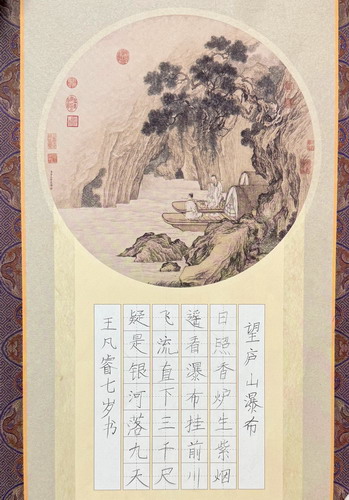 望庐山瀑布
日照香炉生紫烟
遥看瀑布挂前川
飞流直下三千尺
疑是银河落九天
王凡睿七岁书